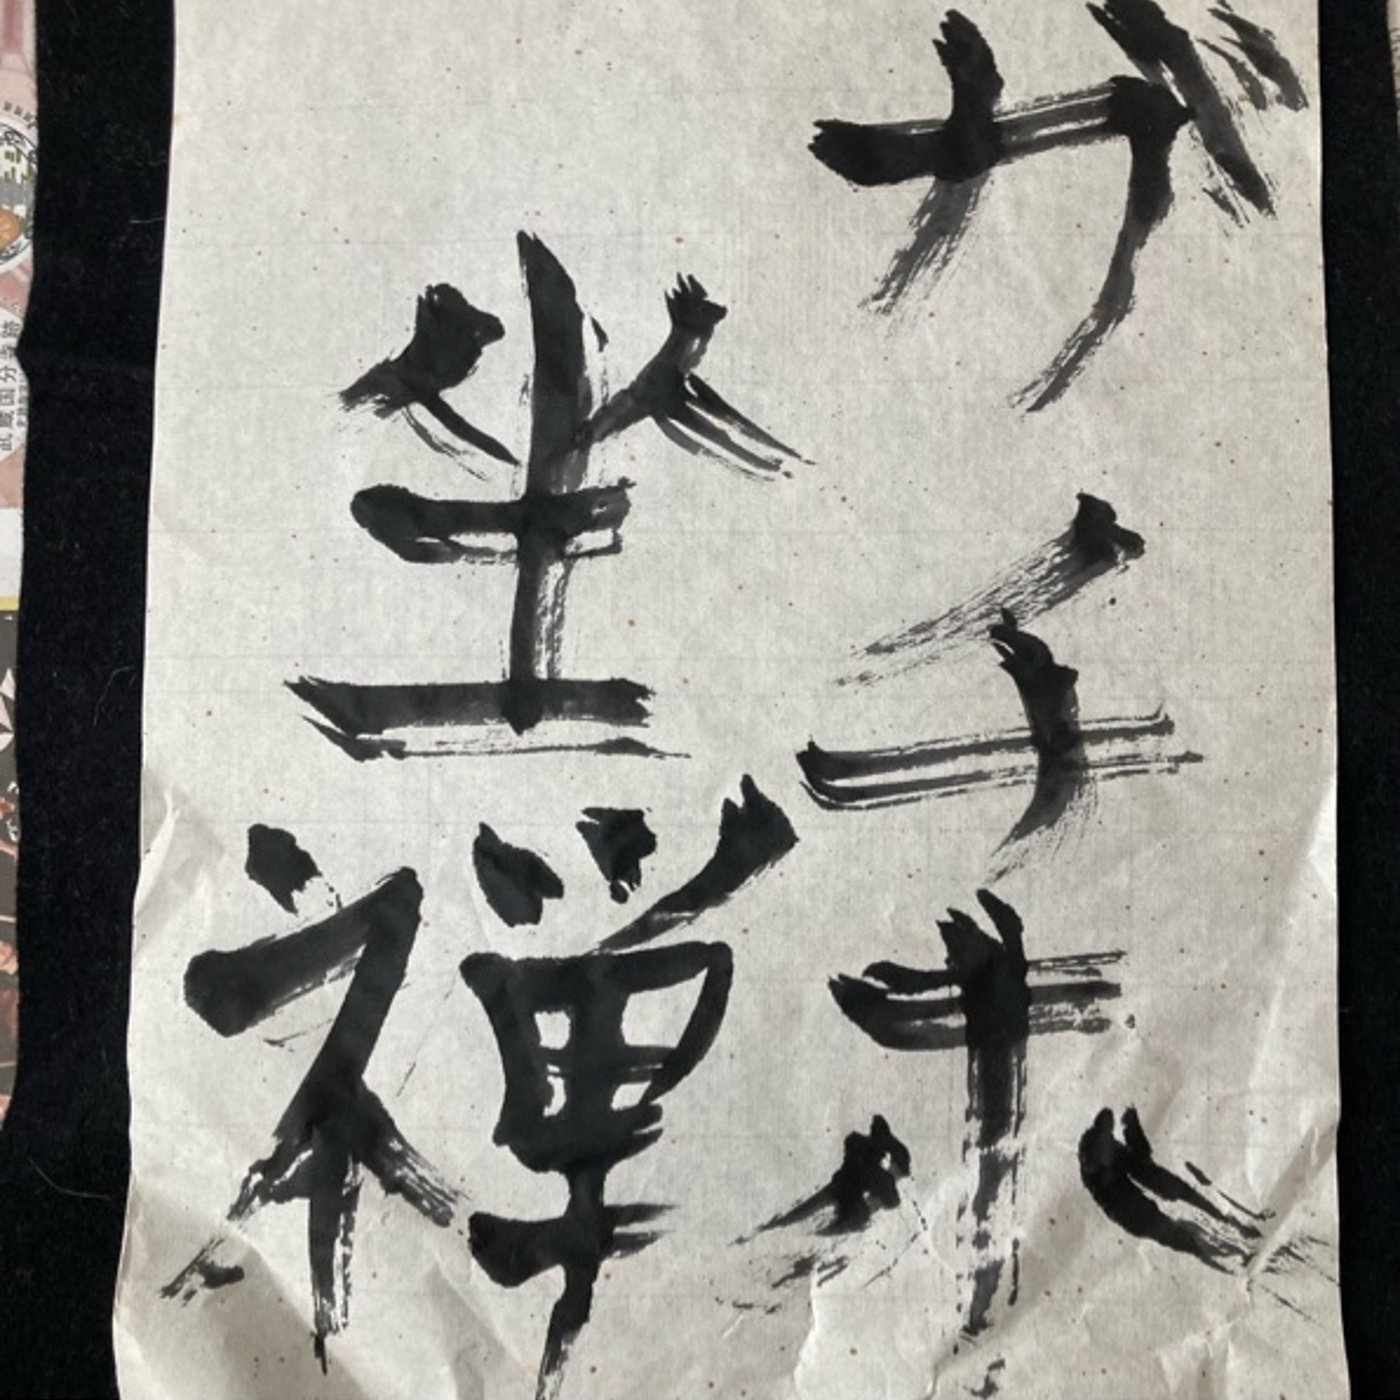 ガチホ
坐禅